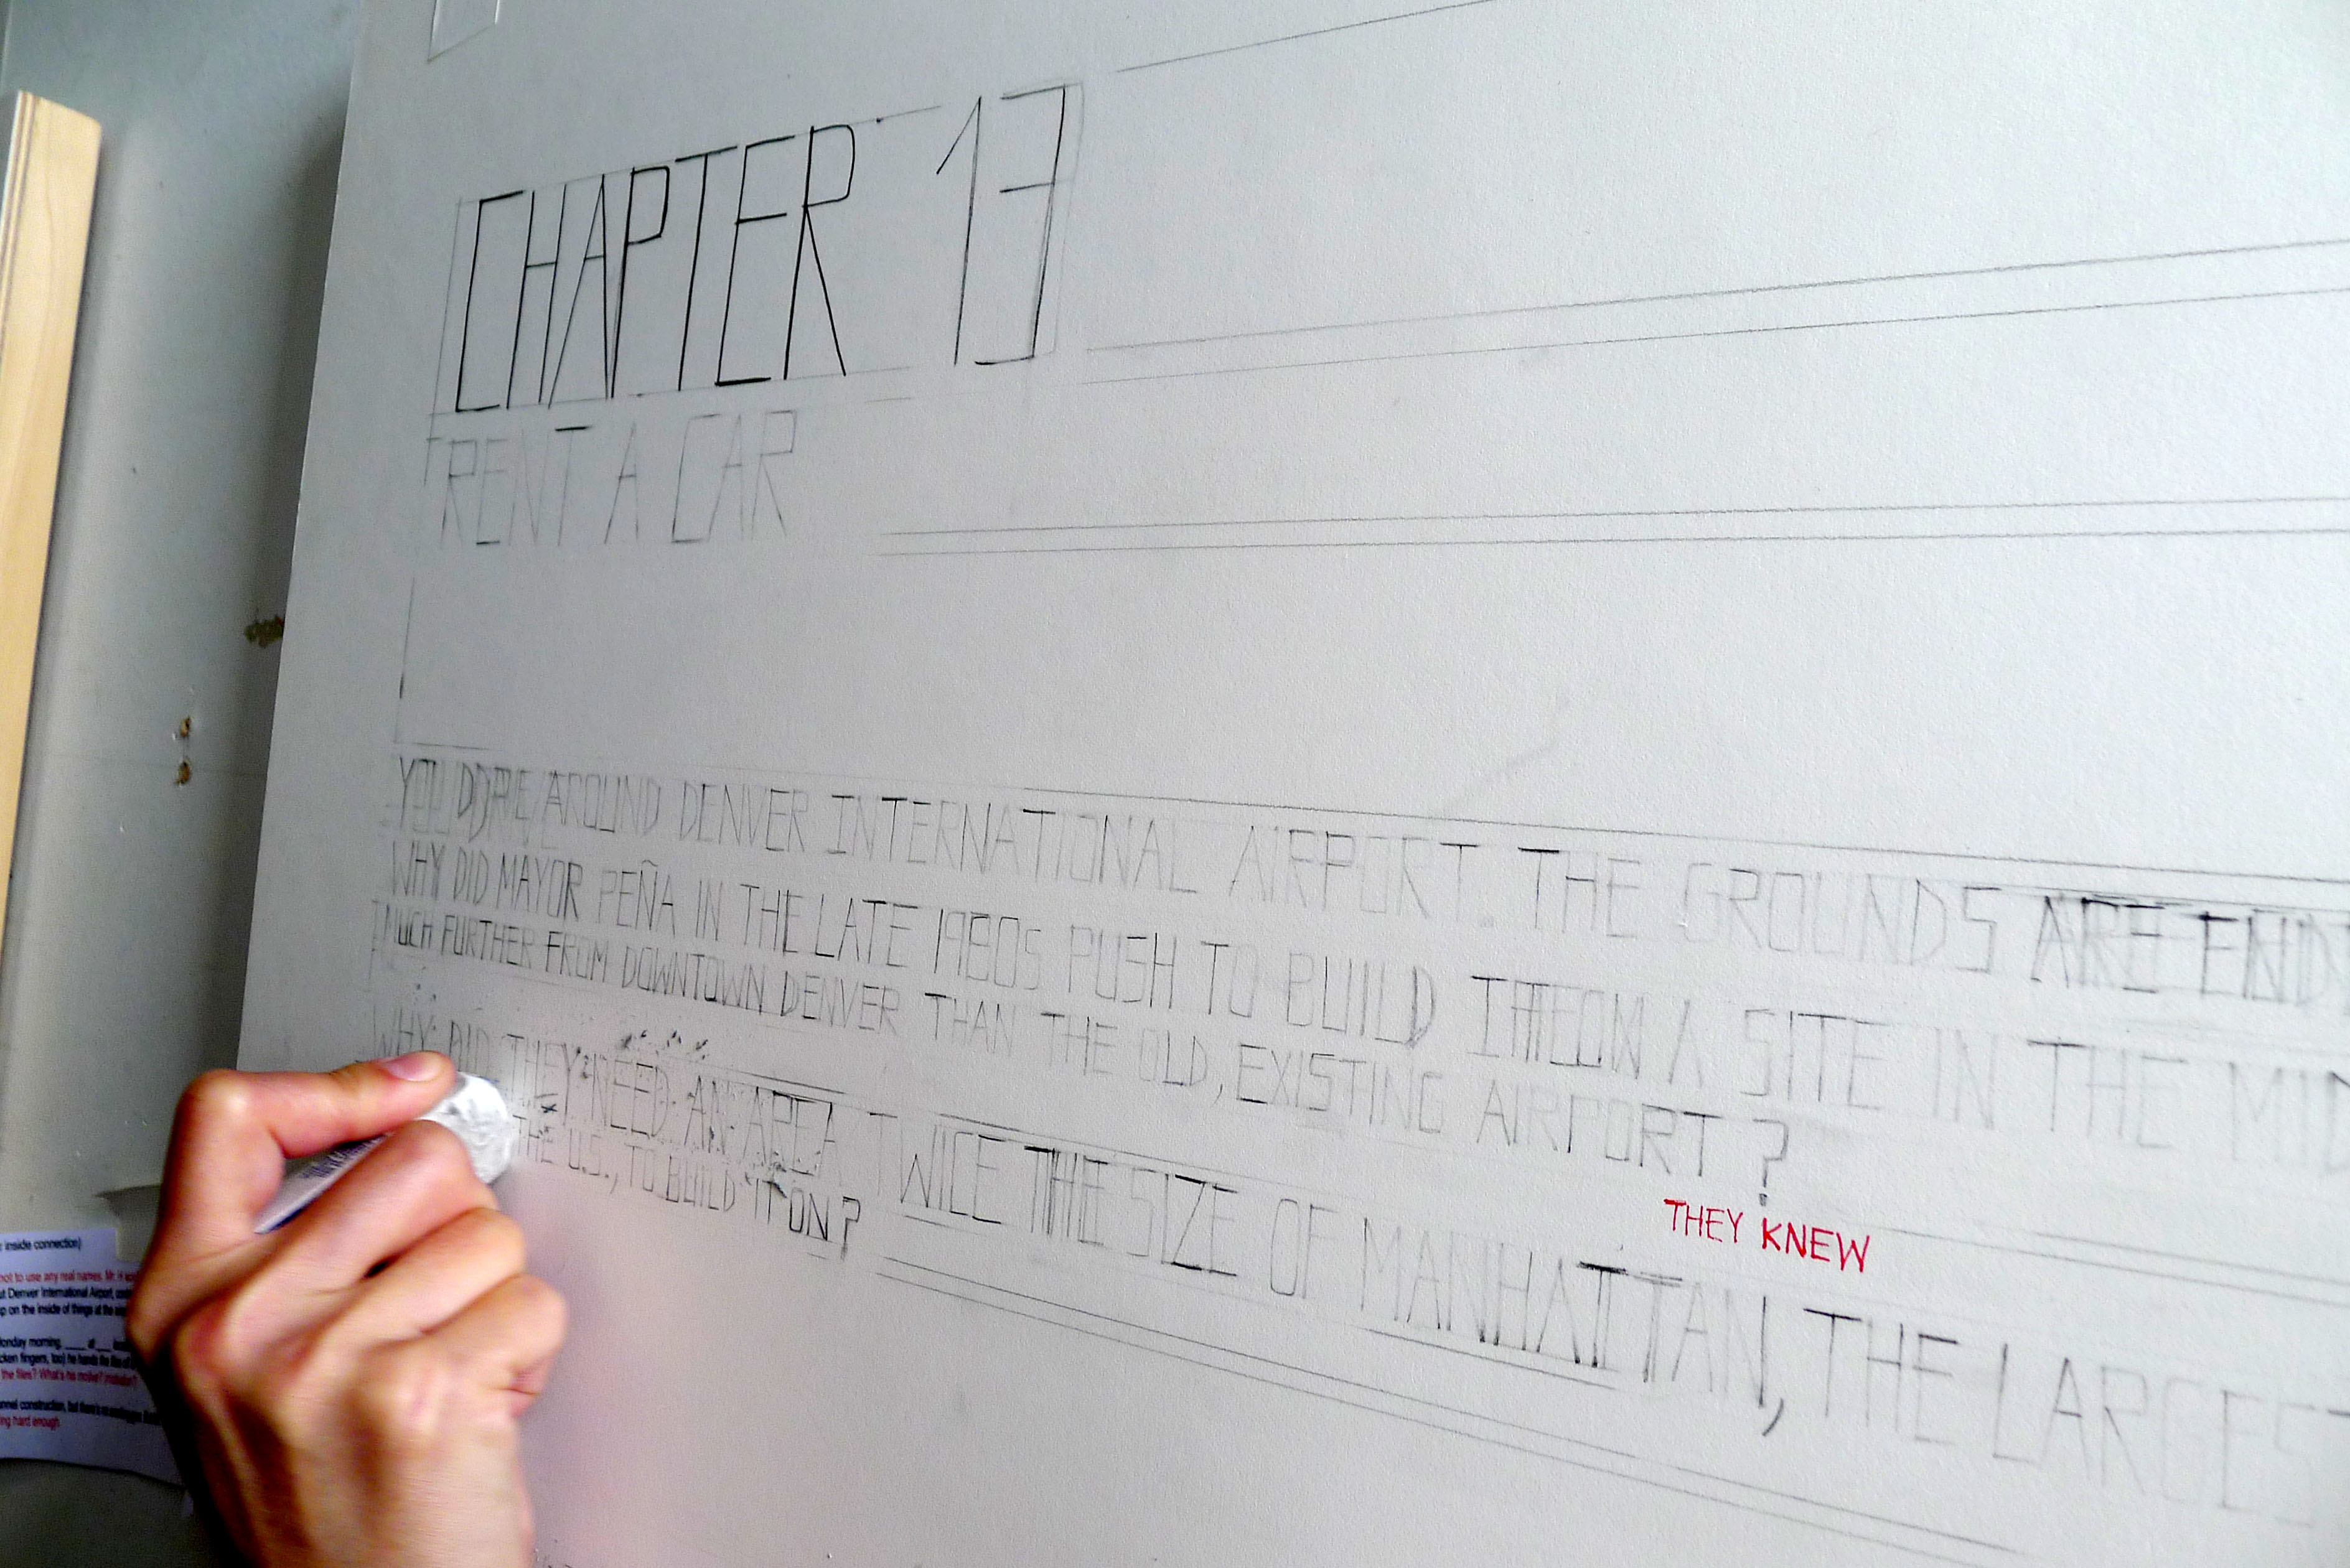 CHAPTER 13
RENT A CAR
YOU DRIVE AROUND DENVER INTERNATIONAL AIRPORT. THE GROUNDS ARE END
WHY DID MAYOR PEÑA IN THE LATE 1980S PUSH TO BUILD IT ON A SITE IN THE MID
MUCH FURTHER FROM DOWNTOWN DENVER THAN THE OLD, EXISTING AIRPORT?
THEY KNEW
WHY DID THEY NEED AN AREA TWICE THE SIZE OF MANHATTAN, THE LARGEST
THE U.S., TO BUILD IT ON?
inside connection)
not to use any real names. Mr. H
ut Denver International Airport,
p on the inside of things at the
onday morning, ____ at ___
cken fingers, too) he hands the files
the files? What's his motive?
nnel construction, but there's no
ing hard enough